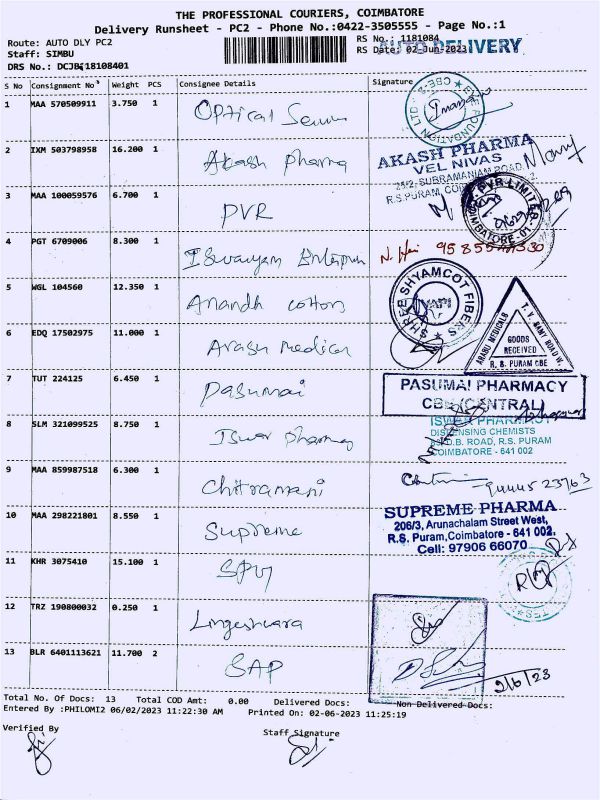 THE PROFESSIONAL COURIERS, COIMBATORE
Delivery Runsheet - PC2 - Phone No.:0422-3505555 - Page No.:1
Route: AUTO DLY PC2
RS No.: 1181084
Staff: SIMBU
RS Date: 02-Jun-2023
AUTO DELIVERY
DRS No.: DCJB18108401
S No Consignment No Weight PCS Consignee Details Signature
1 MAA 570509911 3.750 1 Optical
2 IXM 503798958 16.200 1 Akash pharma
AKASH PHARMA
VEL NIVAS
252, SUBRAMANIAM ROAD,
R.S PURAM,
3 MAA 100059576 6.700 1 PVR
PVR LIMITED
COIMBATORE-01
4 PGT 6709006 8.300 1
5 WGL 104560 12.350 1 Anandh cottons
SHREE SHYAMCOT FIBERS
VAPI
6 EDQ 17502975 11.000 1 Arasu medical
ARASU MEDICALS
T. V. SAMY ROAD W.
GOODS
RECEIVED
R. S. PURAM CBE
7 TUT 224125 6.450 1 Pasumai
PASUMAI PHARMACY
CBE (CENTRAL)
8 SLM 321099525 8.750 1 Iswar pharmacy
ISWAR PHARMACY
DISPENSING CHEMISTS
D.B. ROAD, R.S. PURAM
COIMBATORE - 641 002
9 MAA 859987518 6.300 1 Chitramani
10 MAA 298221801 8.550 1 Supreme
SUPREME PHARMA
206/3, Arunachalam Street West,
R.S. Puram, Coimbatore - 641 002.
Cell: 97906 66070
11 KHR 3075410 15.100 1
12 TRZ 190800032 0.250 1 Lingeshwara
13 BLR 6401113621 11.700 2 SAP
2/6/23
Total No. Of Docs: 13 Total COD Amt: 0.00 Delivered Docs: Non Delivered Docs:
Entered By :PHILOMI2 06/02/2023 11:22:30 AM Printed On: 02-06-2023 11:25:19
Verified By
Staff Signature